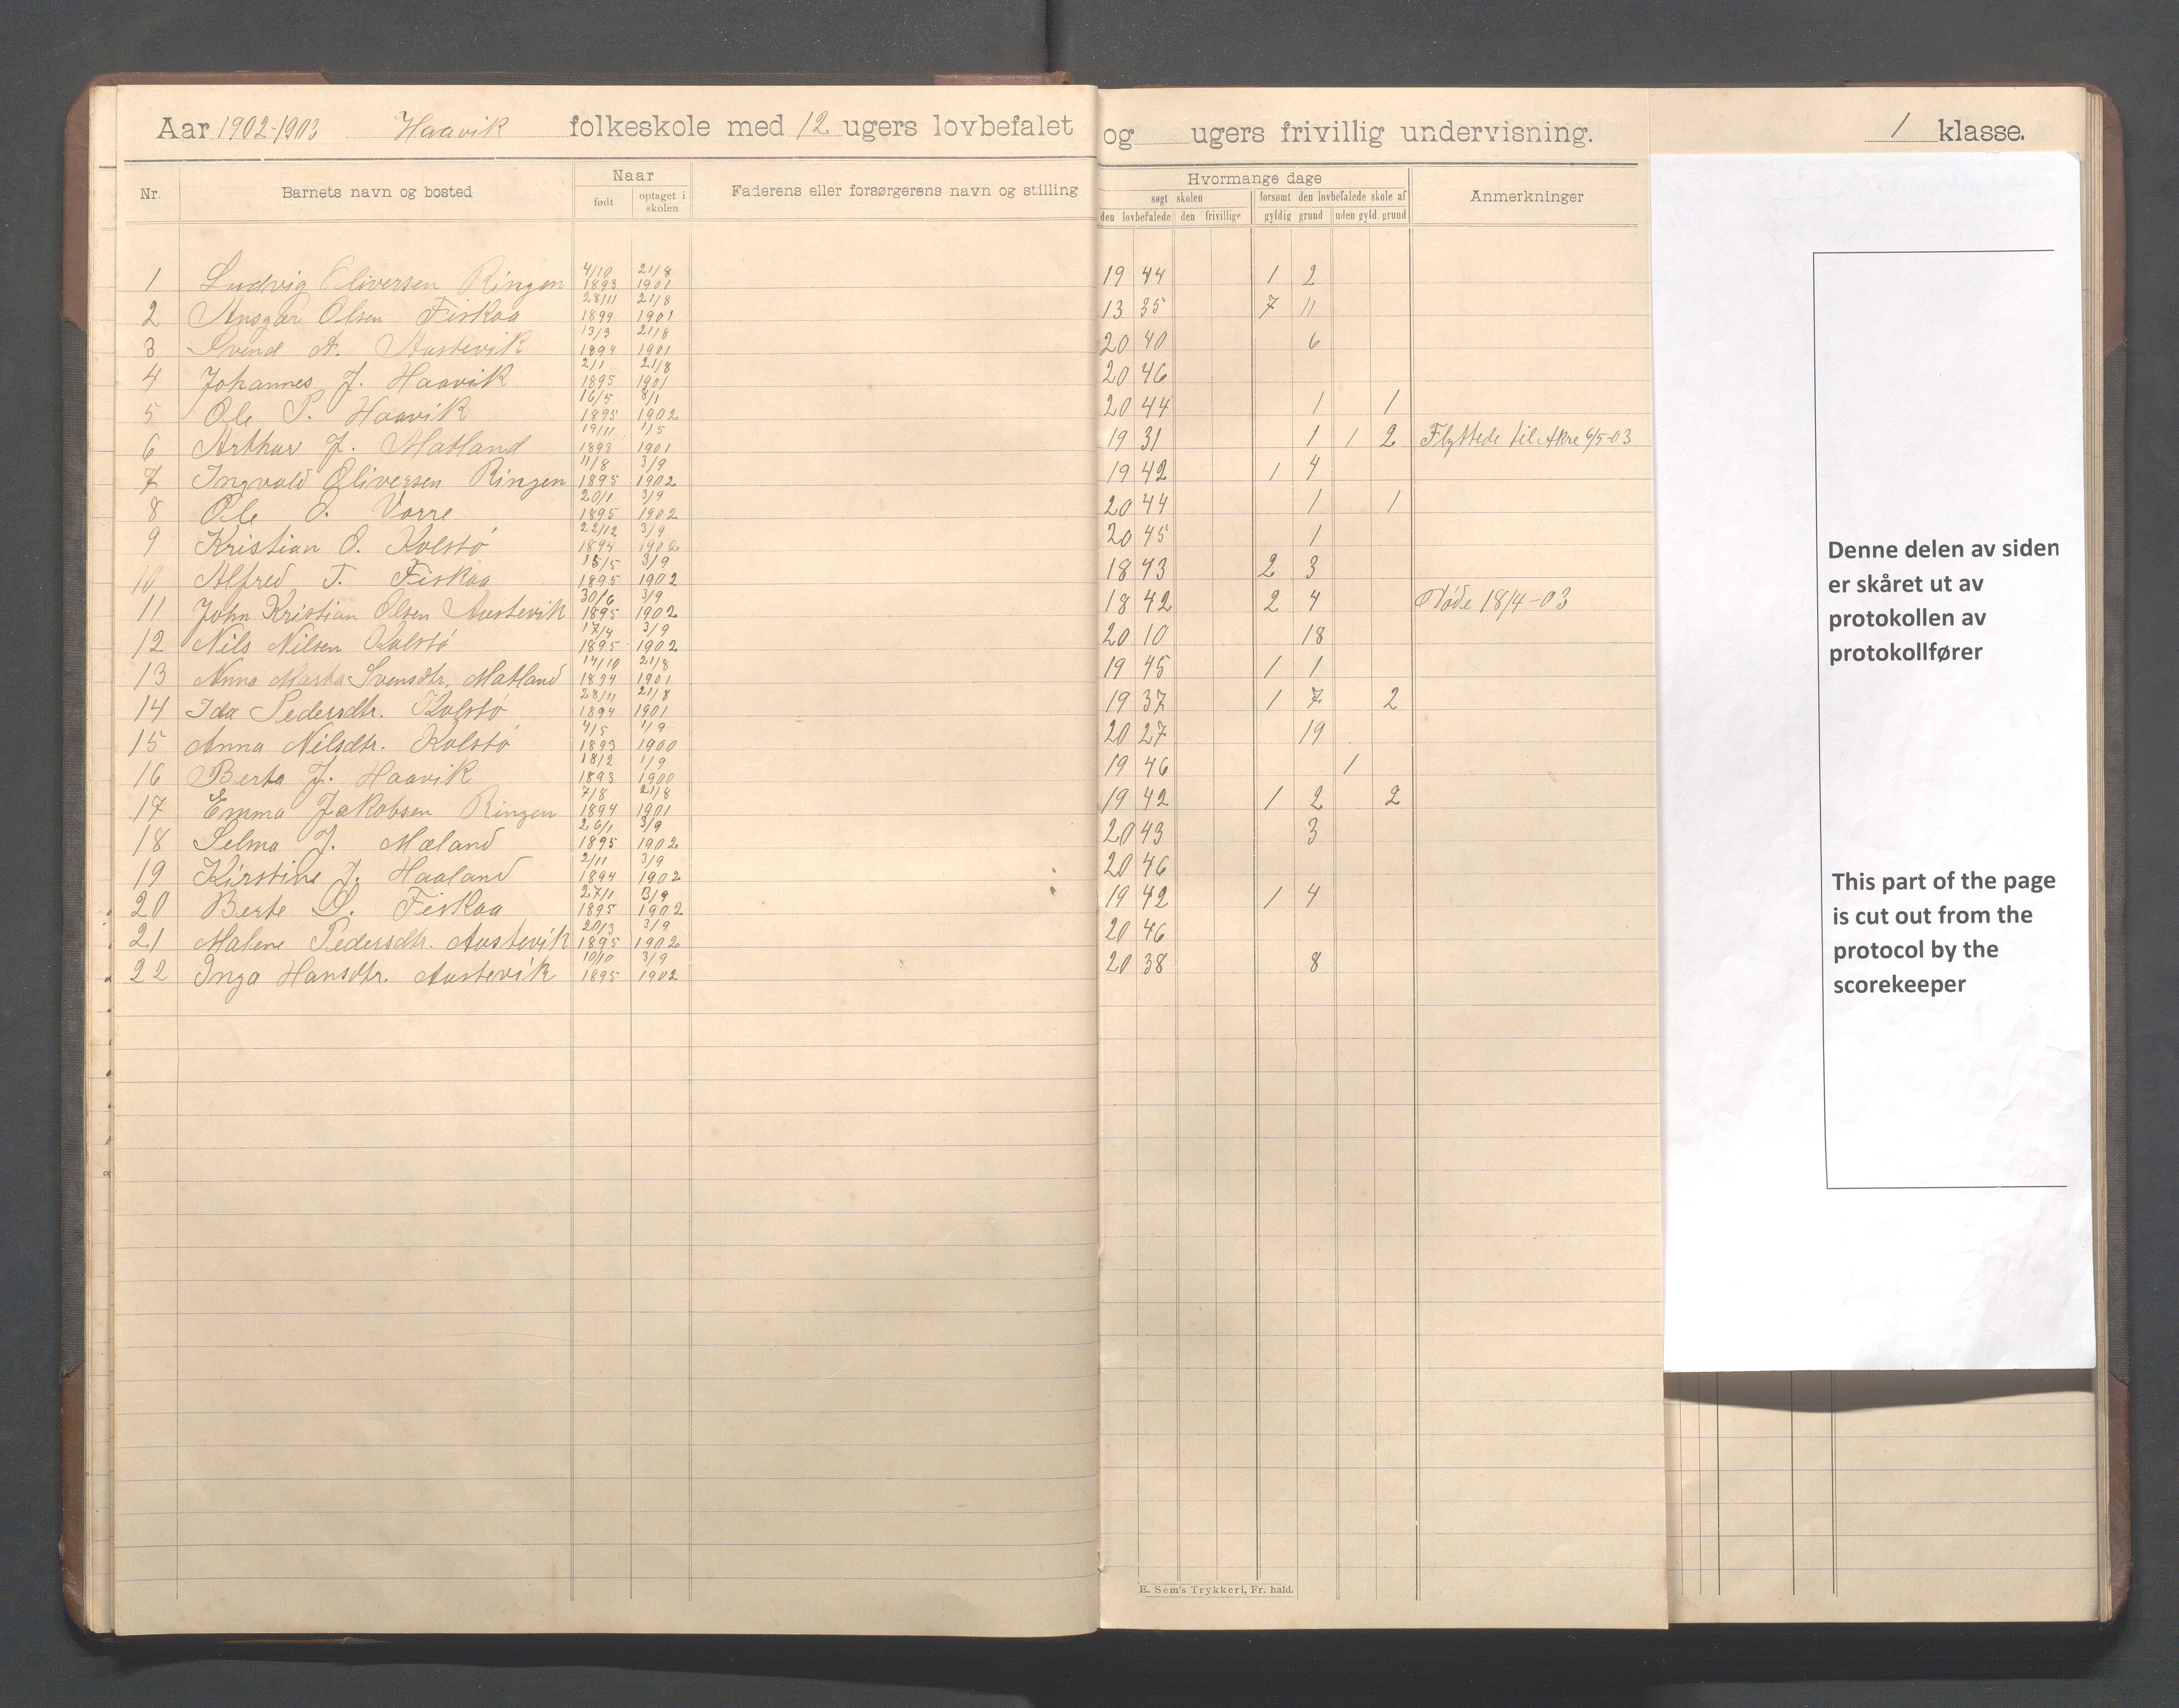 Aar 1902-1903 Haavik folkeskole med 12 ugers lovbefalet og ugers frivillig undervisning. 1 klasse.
Nr. Barnets navn og bosted Naar født optaget i skolen Faderens eller forsørgerens navn og stilling Hvormange dage søgt skolen den lovbefalede den frivillige forsømt den lovbefalede skole af gyldig grund uden gyld. grund Anmerkninger
1 Ludvig Oliversen Ringen 4/10 1893 21/8 1901 19 44 1 2
2 Ansgar Olsen Fiskaa 28/11 1894 21/8 1901 13 35 7 11
3 Svend A. Austevik 13/3 1894 21/8 1901 20 40 6
4 Johannes J. Haavik 2/1 1895 21/8 1901 20 46
5 Ole P. Haavik 16/5 1895 8/1 1902 20 44 1 1
6 Arthur J. Matland 19/11 1893 1/5 1901 19 31 1 1 2 Flyttede til Akre 6/5-03
7 Ingvald Oliversen Ringen 11/8 1895 3/9 1902 19 42 1 4
8 Ole O. Vorre 20/1 1895 3/9 1902 20 44 1 1
9 Kristian O. Kolstø 22/12 1894 3/9 1902 20 45 1
10 Alfred T. Fiskaa 15/5 1895 3/9 1902 18 43 2 3
11 John Kristian Olsen Austevik 30/6 1895 3/9 1902 18 42 2 4 Døde 18/4-03
12 Nils Nilsen Kolstø 17/4 1895 3/9 1902 20 10 18
13 Anna Marta Svensdtr. Matland 14/10 1894 21/8 1901 19 45 1 1
14 Ida Pedersdtr. Kolstø 28/11 1894 21/8 1901 19 37 1 7 2
15 Anna Nilsdtr. Kolstø 4/5 1893 1/9 1900 20 27 19
16 Berta J. Haavik 18/2 1893 1/9 1900 19 46 1
17 Emma Jakobsen Ringen 7/8 1894 21/8 1901 19 42 1 2 2
18 Selma J. Mæland 26/1 1895 3/9 1902 20 43 3
19 Kirstine J. Haaland 2/11 1894 3/9 1902 20 46
20 Berte S. Fiskaa 27/1 1895 3/9 1902 19 42 1 4
21 Malene Pedersdtr. Austevik 20/3 1895 3/9 1902 20 46
22 Inga Hansdtr. Austevik 10/10 1895 3/9 1902 20 38 8
E. Sem's Trykkeri, Fr. hald.
Denne delen av siden
er skåret ut av
protokollen av
protokollfører
This part of the page
is cut out from the
protocol by the
scorekeeper